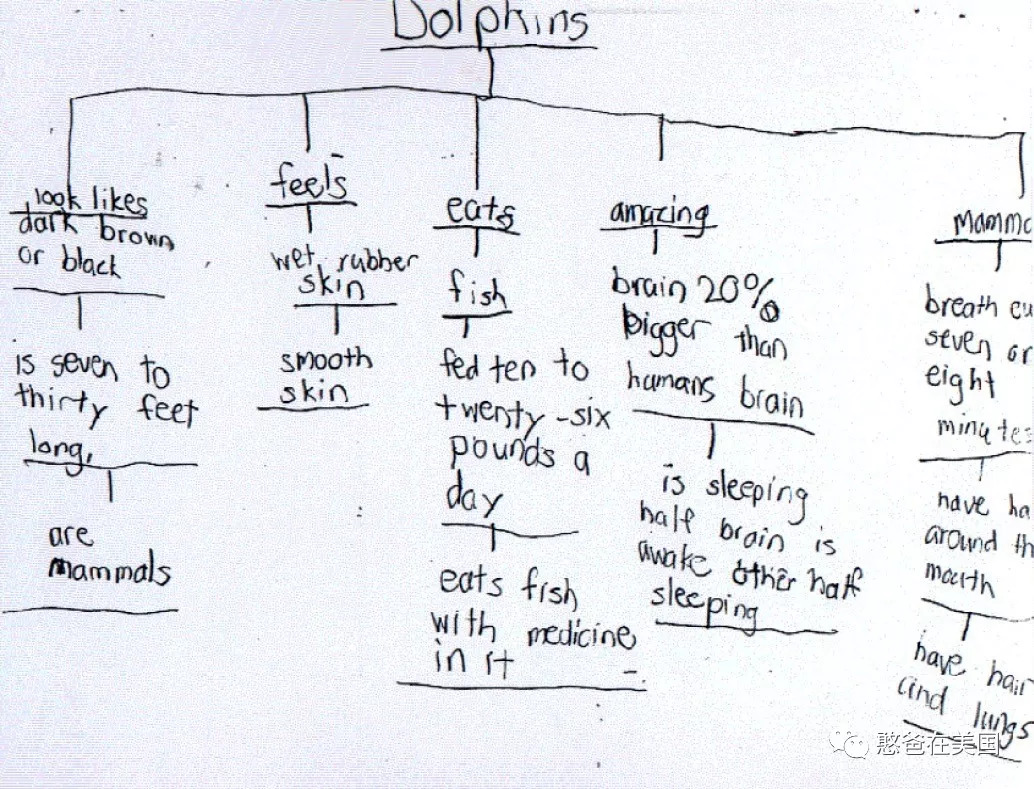 Dolphins
look likes
dark brown
or black
is seven to
thirty feet
long,
are
mammals
feels
wet, rubber
skin
smooth
skin
eats
fish
fed ten to
twenty-six
pounds a
day
eats fish
with medicine
in it
amazing
brain 20%
bigger than
humans brain
is sleeping
half brain is
awake other half
sleeping
breath
seven or
eight
minutes
have
around
mouth
have hair
and lungs
憨爸在美国